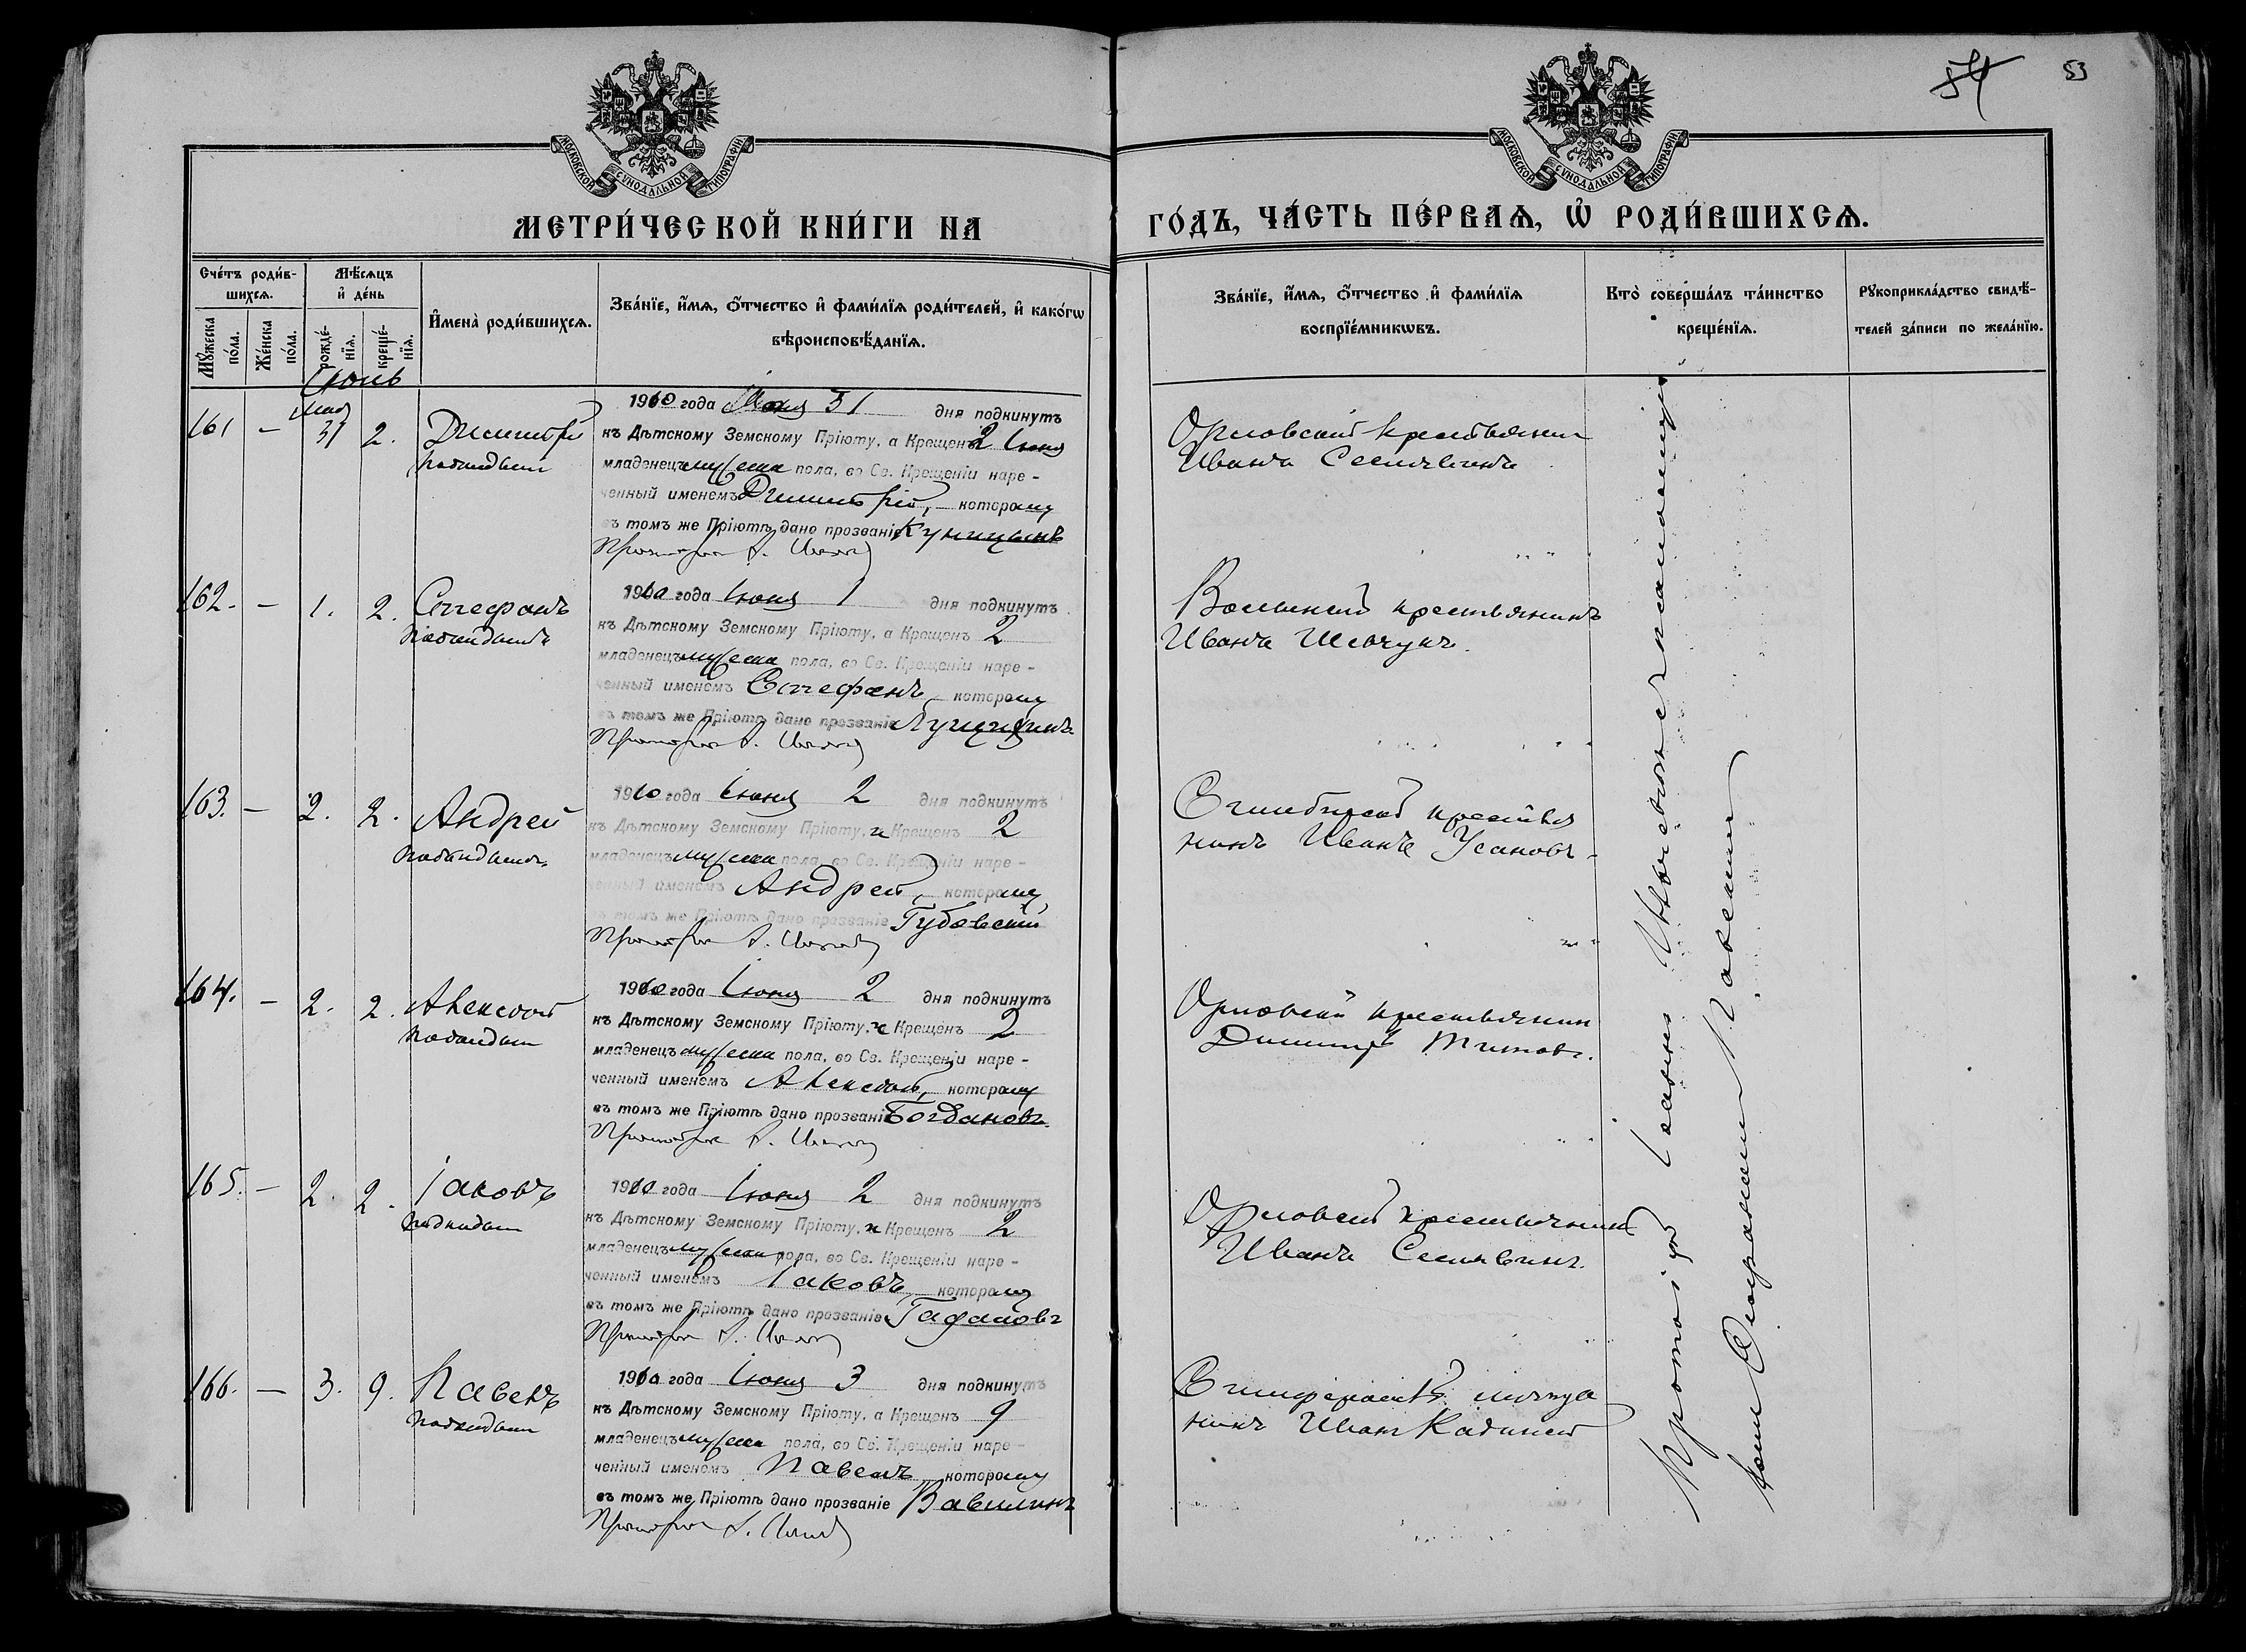 54 53
МОСКОВСКОЙ СѴНОДАЛЬНОЙ ТИПОГРАФІИ
МОСКОВСКОЙ СѴНОДАЛЬНОЙ ТИПОГРАФІИ
МЕТРИ́ЧЕСКОЙ КНИ́ГИ НА
ГО́ДЪ, ЧА́СТЬ ПЕ́РВАѦ, Ѽ РОДИ́ВШИХСѦ.
Сче́тъ роди́в-
шихсѧ.
Мꙋ́жеска по́ла.
Же́нска по́ла.
Мѣ́сѧцъ
и҆ де́нь
рожде́-
нїѧ.
креще́-
нїѧ.
И҆мена̀ роди́вшихсѧ.
Зва́нїе, и҆́мѧ, ѻ҆́тчество и҆ фами́лїѧ роди́телей, и҆ како́гѡ
вѣроисповѣ́данїѧ.
Зва́нїе, и҆́мѧ, ѻ҆́тчество и҆ фами́лїѧ
воспрїе́мникѡвъ.
Кто̀ соверша́лъ та́инство
креще́нїѧ.
Рꙋкоприкла́дство свидѣ́-
телей за́писи по жела́нїю.
Іюнь
161 – мая 31 2. Димитрій
подкидышъ
1910 года Мая 31 дня подкинутъ
къ Дѣтскому Земскому Пріюту, а Крещенъ 2 Іюня
младенецъ мужеска пола, во Св. Крещеніи наре-
ченный именемъ Димитрій, которому
въ томъ же Пріютѣ дано прозваніе Куницынъ
Орловскій крестьянин
Иванъ Селивинъ
162. – 1. 2. Стефанъ
подкидышъ
1910 года Іюня 1 дня подкинутъ
къ Дѣтскому Земскому Пріюту, а Крещенъ 2
младенецъ мужеска пола, во Св. Крещеніи наре-
ченный именемъ Стефанъ, которому
въ томъ же Пріютѣ дано прозваніе
крестьянинъ
Иванъ Шевчукъ.
163. – 2. 2. Андрей
подкидышъ
1910 года Іюня 2 дня подкинутъ
къ Дѣтскому Земскому Пріюту, и Крещенъ 2
младенецъ мужеска пола, во Св. Крещеніи наре-
ченный именемъ Андрей, которому
въ томъ же Пріютѣ дано прозваніе Губовскій
Симбирскій крестья
нинъ Иванъ Усановъ
164. – 2. 2. Алексѣй
подкидыш
1910 года Іюня 2 дня подкинутъ
къ Дѣтскому Земскому Пріюту, и Крещенъ 2
младенецъ мужеска пола, во Св. Крещеніи наре-
ченный именемъ Алексѣй, которому
въ томъ же Пріютѣ дано прозваніе Богдановъ
Орловскій крестьянин
Димитрій Титовъ.
165. – 2. 2. Іаковъ
подкидыш
1910 года Іюня 2 дня подкинутъ
къ Дѣтскому Земскому Пріюту, и Крещенъ 2
младенецъ мужеска пола, во Св. Крещеніи наре-
ченный именемъ Іаковъ, которому
въ томъ же Пріютѣ дано прозваніе
Орловскій крестьянинъ
Иванъ Селивинъ.
166. – 3. 9. Павелъ
подкидыш
1910 года Іюня 3 дня подкинутъ
къ Дѣтскому Земскому Пріюту, а Крещенъ 9
младенецъ мужеска пола, во Св. Крещеніи наре-
ченный именемъ Павелъ, которому
въ томъ же Пріютѣ дано прозваніе Вавилинъ
Симферопольскій мѣща
нинъ Иван
Протоіерей Іоаннъ съ псаломщикомъ